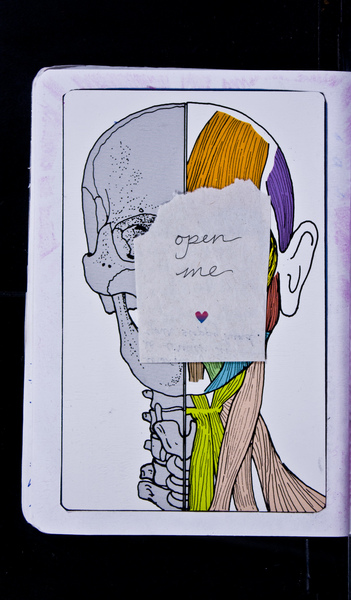 open
me